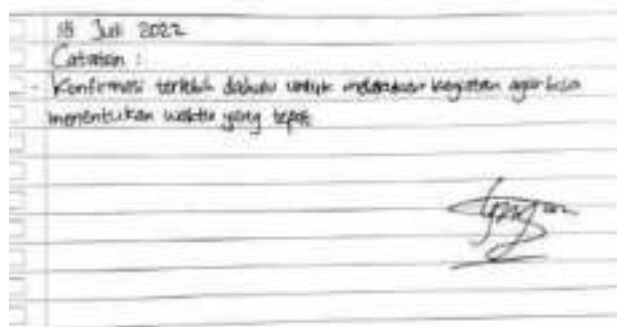 18 Juli 2022
Catatan :
- Konfirmasi terlebih dahulu untuk melakukan kegiatan agar bisa
menentukan waktu yang tepat